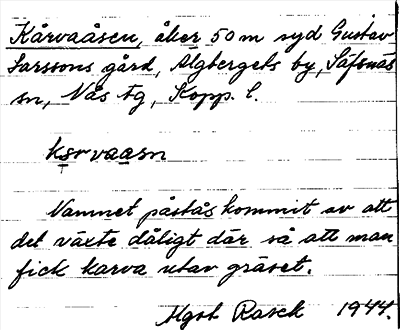 Kårvaåsen, åker 50 m syd Gustav
Larssons gård, Algbergets by, Säfsnäs
sn, Nås tg, Kopp. l.
ksrvaasn
Namnet påstås kommit av att
det växte dåligt där så att man
fick karva utav gräset.
Mgst Rasck 1944.